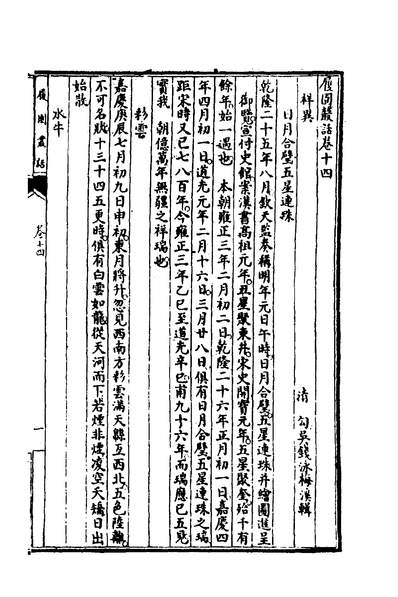 履園叢話卷十四
清 勾吳錢泳梅溪輯
祥異
日月合璧五星連珠
乾隆二十五年八月欽天監奏稱明年元日午時日月合璧五星連珠并繪圖進呈
御覽宣付史館案漢書高祖元年五星聚東井宋史開寶元年五星聚奎殆千有
餘年始一遇也 本朝雍正三年二月初二日乾隆二十六年正月初一日嘉慶四
年四月初一日道光元年二月十六日三月廿八日俱有日月合璧五星連珠之瑞
距宋時又已七八百年今雍正三年乙巳至道光辛巳甫九十六年而瑞應已五見
實我 朝億萬年無疆之祥瑞也
彩雲
嘉慶庚辰七月初九日申初東月將升忽見西南方彩雲滿天緜亙西北五色陸離
不可名狀十三十四五更時俱有白雲如龍從天河而下若煙非煙凌空夭矯日出
始散
水牛
履園叢話
卷十四
一